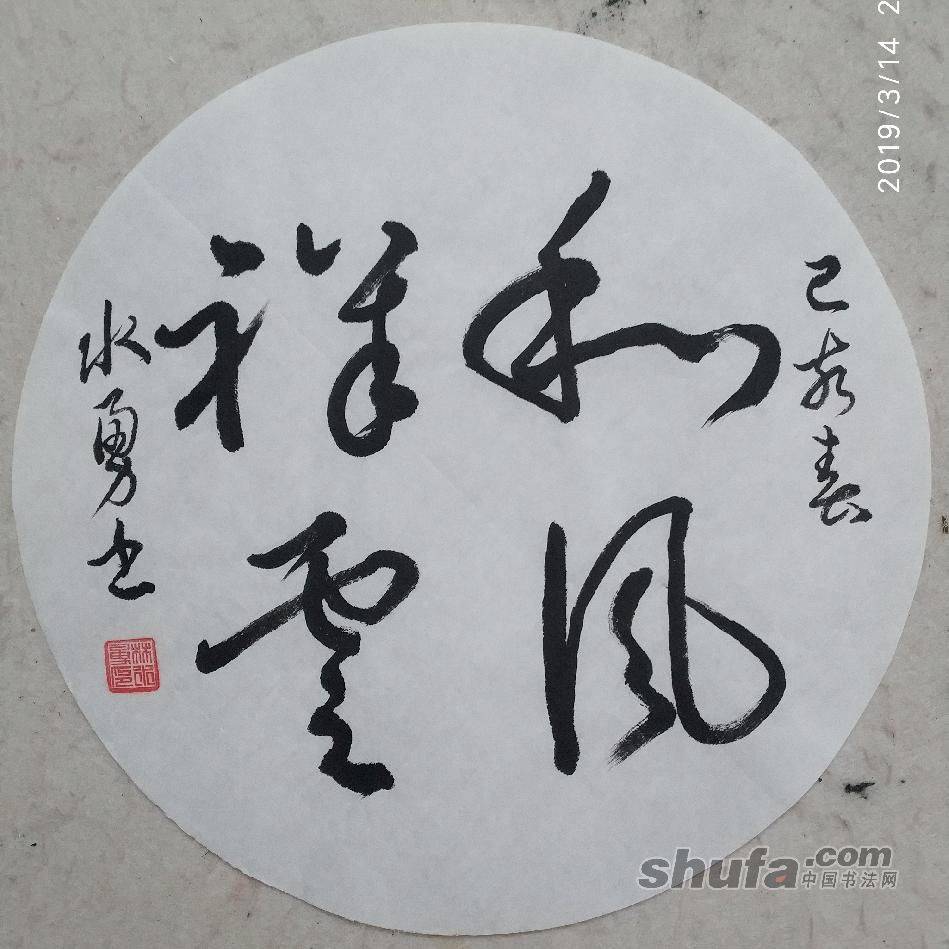 己亥春
和风
祥云
水勇书
林水
勇印
2019/3/14 2
shufa.com
中国书法网